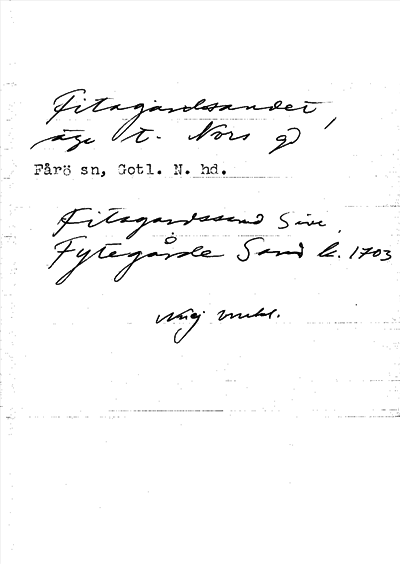 Fitagårdssandet,
äga t. Nors gd
Fårö sn, Gotl. N. hd.
Fitagardssand
Fytegårde Sand k. 1703